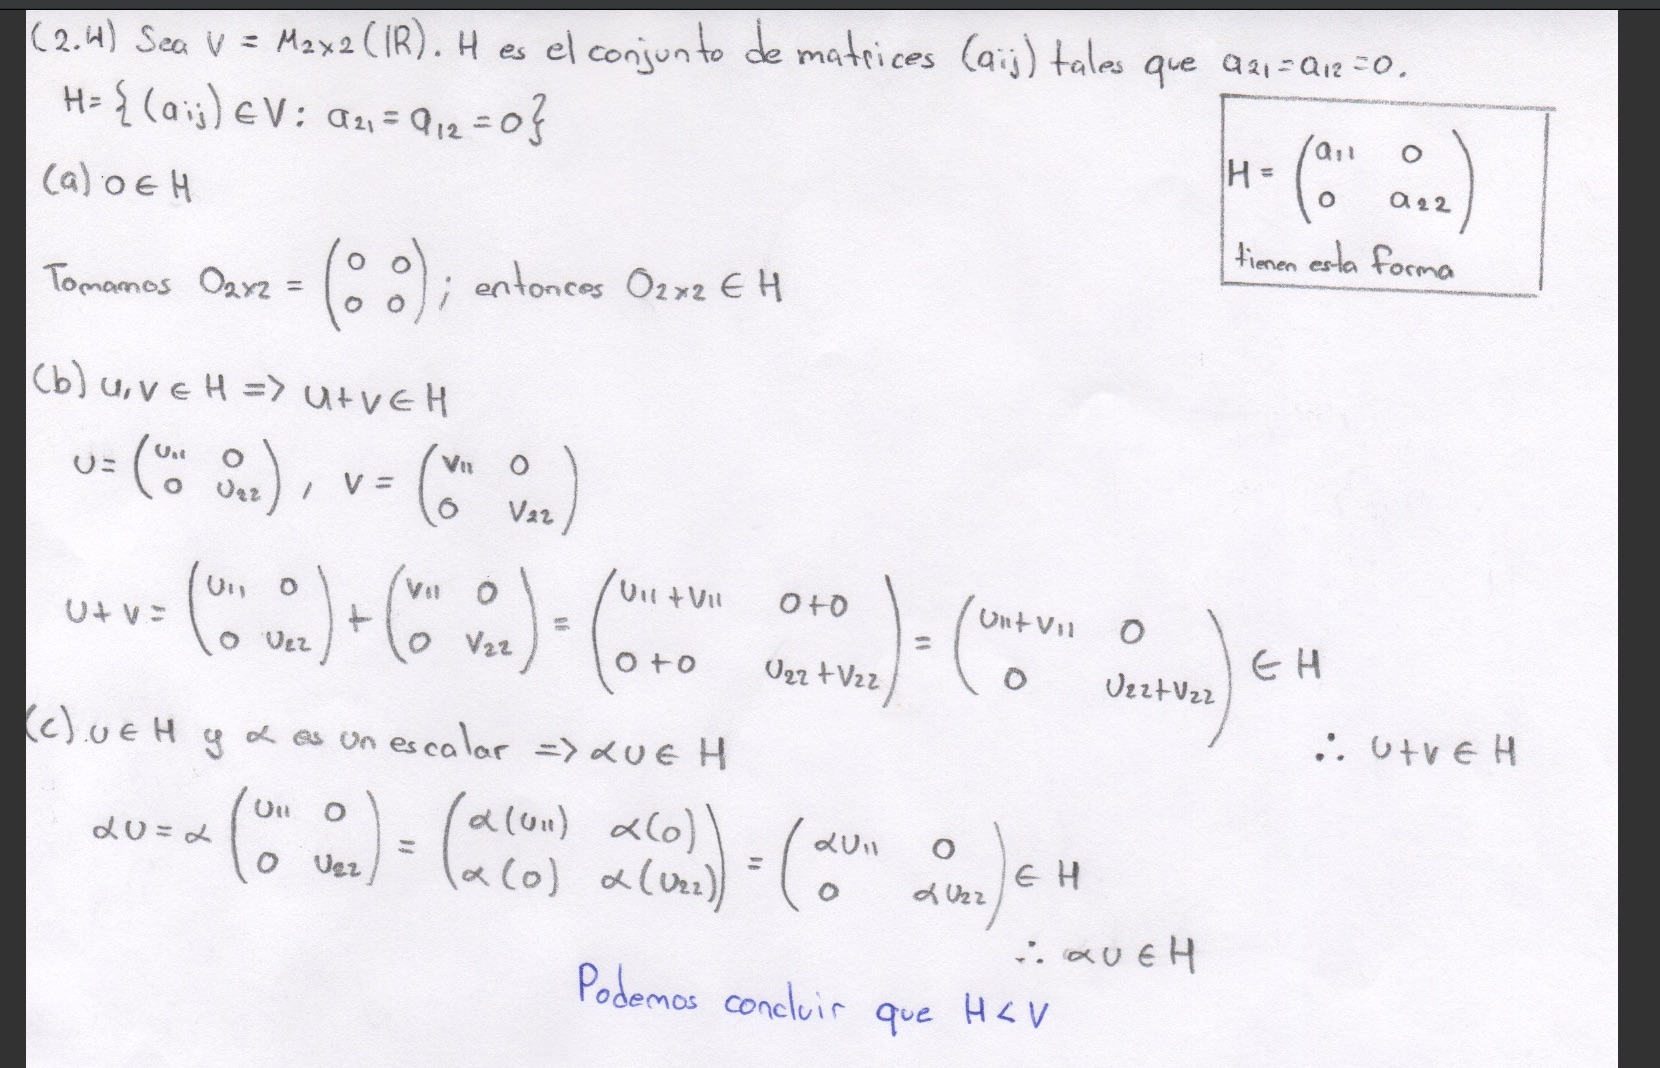 (2.4) Sea V = M2x2(IR). H es el conjunto de matrices (aij) tales que a21 = a12 = 0.
H = { (aij) ∈ V : a21 = a12 = 0 }
H = ( a11 0
0 a22 )
tienen esta forma
(a) 0 ∈ H
Tomamos O2x2 = ( 0 0
0 0 ) ; entonces O2x2 ∈ H
(b) u, v ∈ H => u+v ∈ H
u = ( u11 0
0 u22 ) , v = ( v11 0
0 v22 )
u + v = ( u11 0
0 u22 ) + ( v11 0
0 v22 ) = ( u11 + v11 0+0
0+0 u22 + v22 ) = ( u11+v11 0
0 u22+v22 ) ∈ H
∴ u+v ∈ H
(c). u ∈ H y α es un escalar => αu ∈ H
αu = α ( u11 0
0 u22 ) = ( α(u11) α(0)
α(0) α(u22) ) = ( αu11 0
0 αu22 ) ∈ H
∴ αu ∈ H
Podemos concluir que H < V